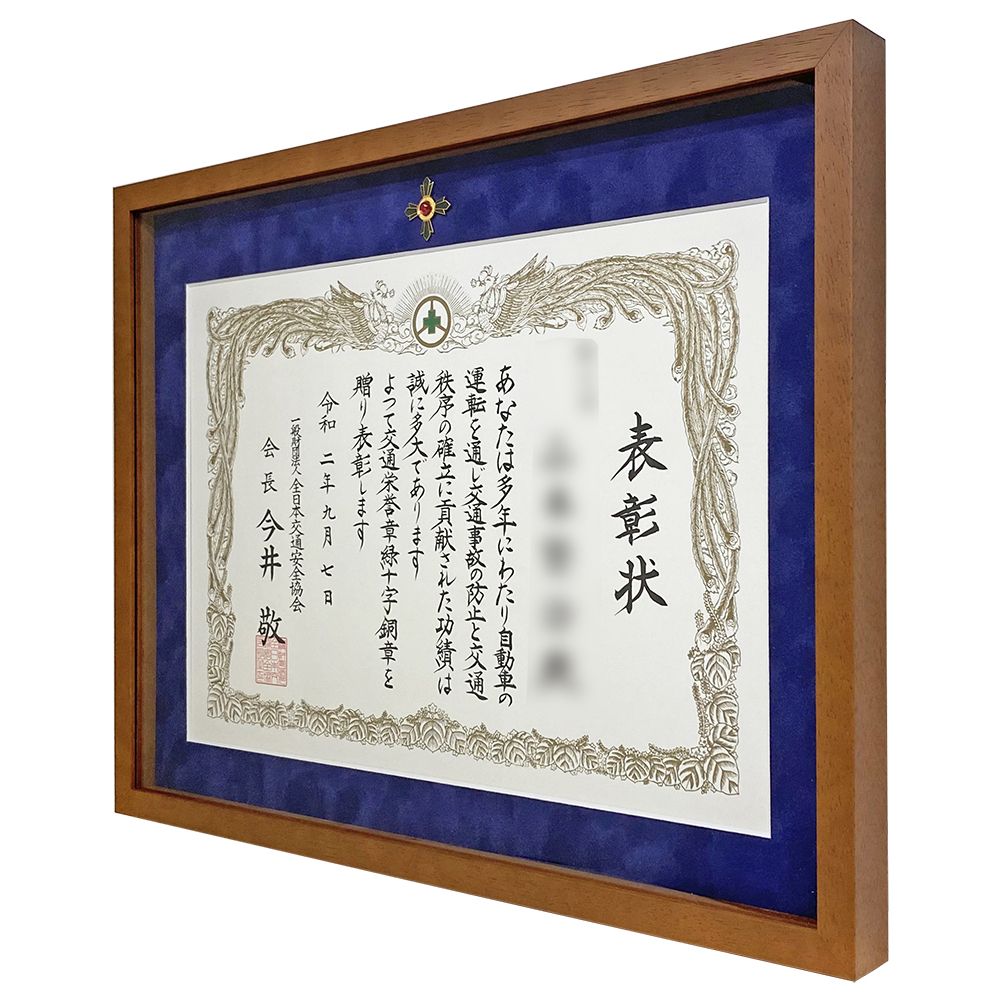 表彰状
あなたは多年にわたり自動車の
運転を通じ交通事故の防止と交通
秩序の確立に貢献された功績は
誠に多大であります
よって交通栄誉章緑十字銅章を
贈り表彰します
令和二年九月七日
一般財団法人全日本交通安全協会
会長今井敬